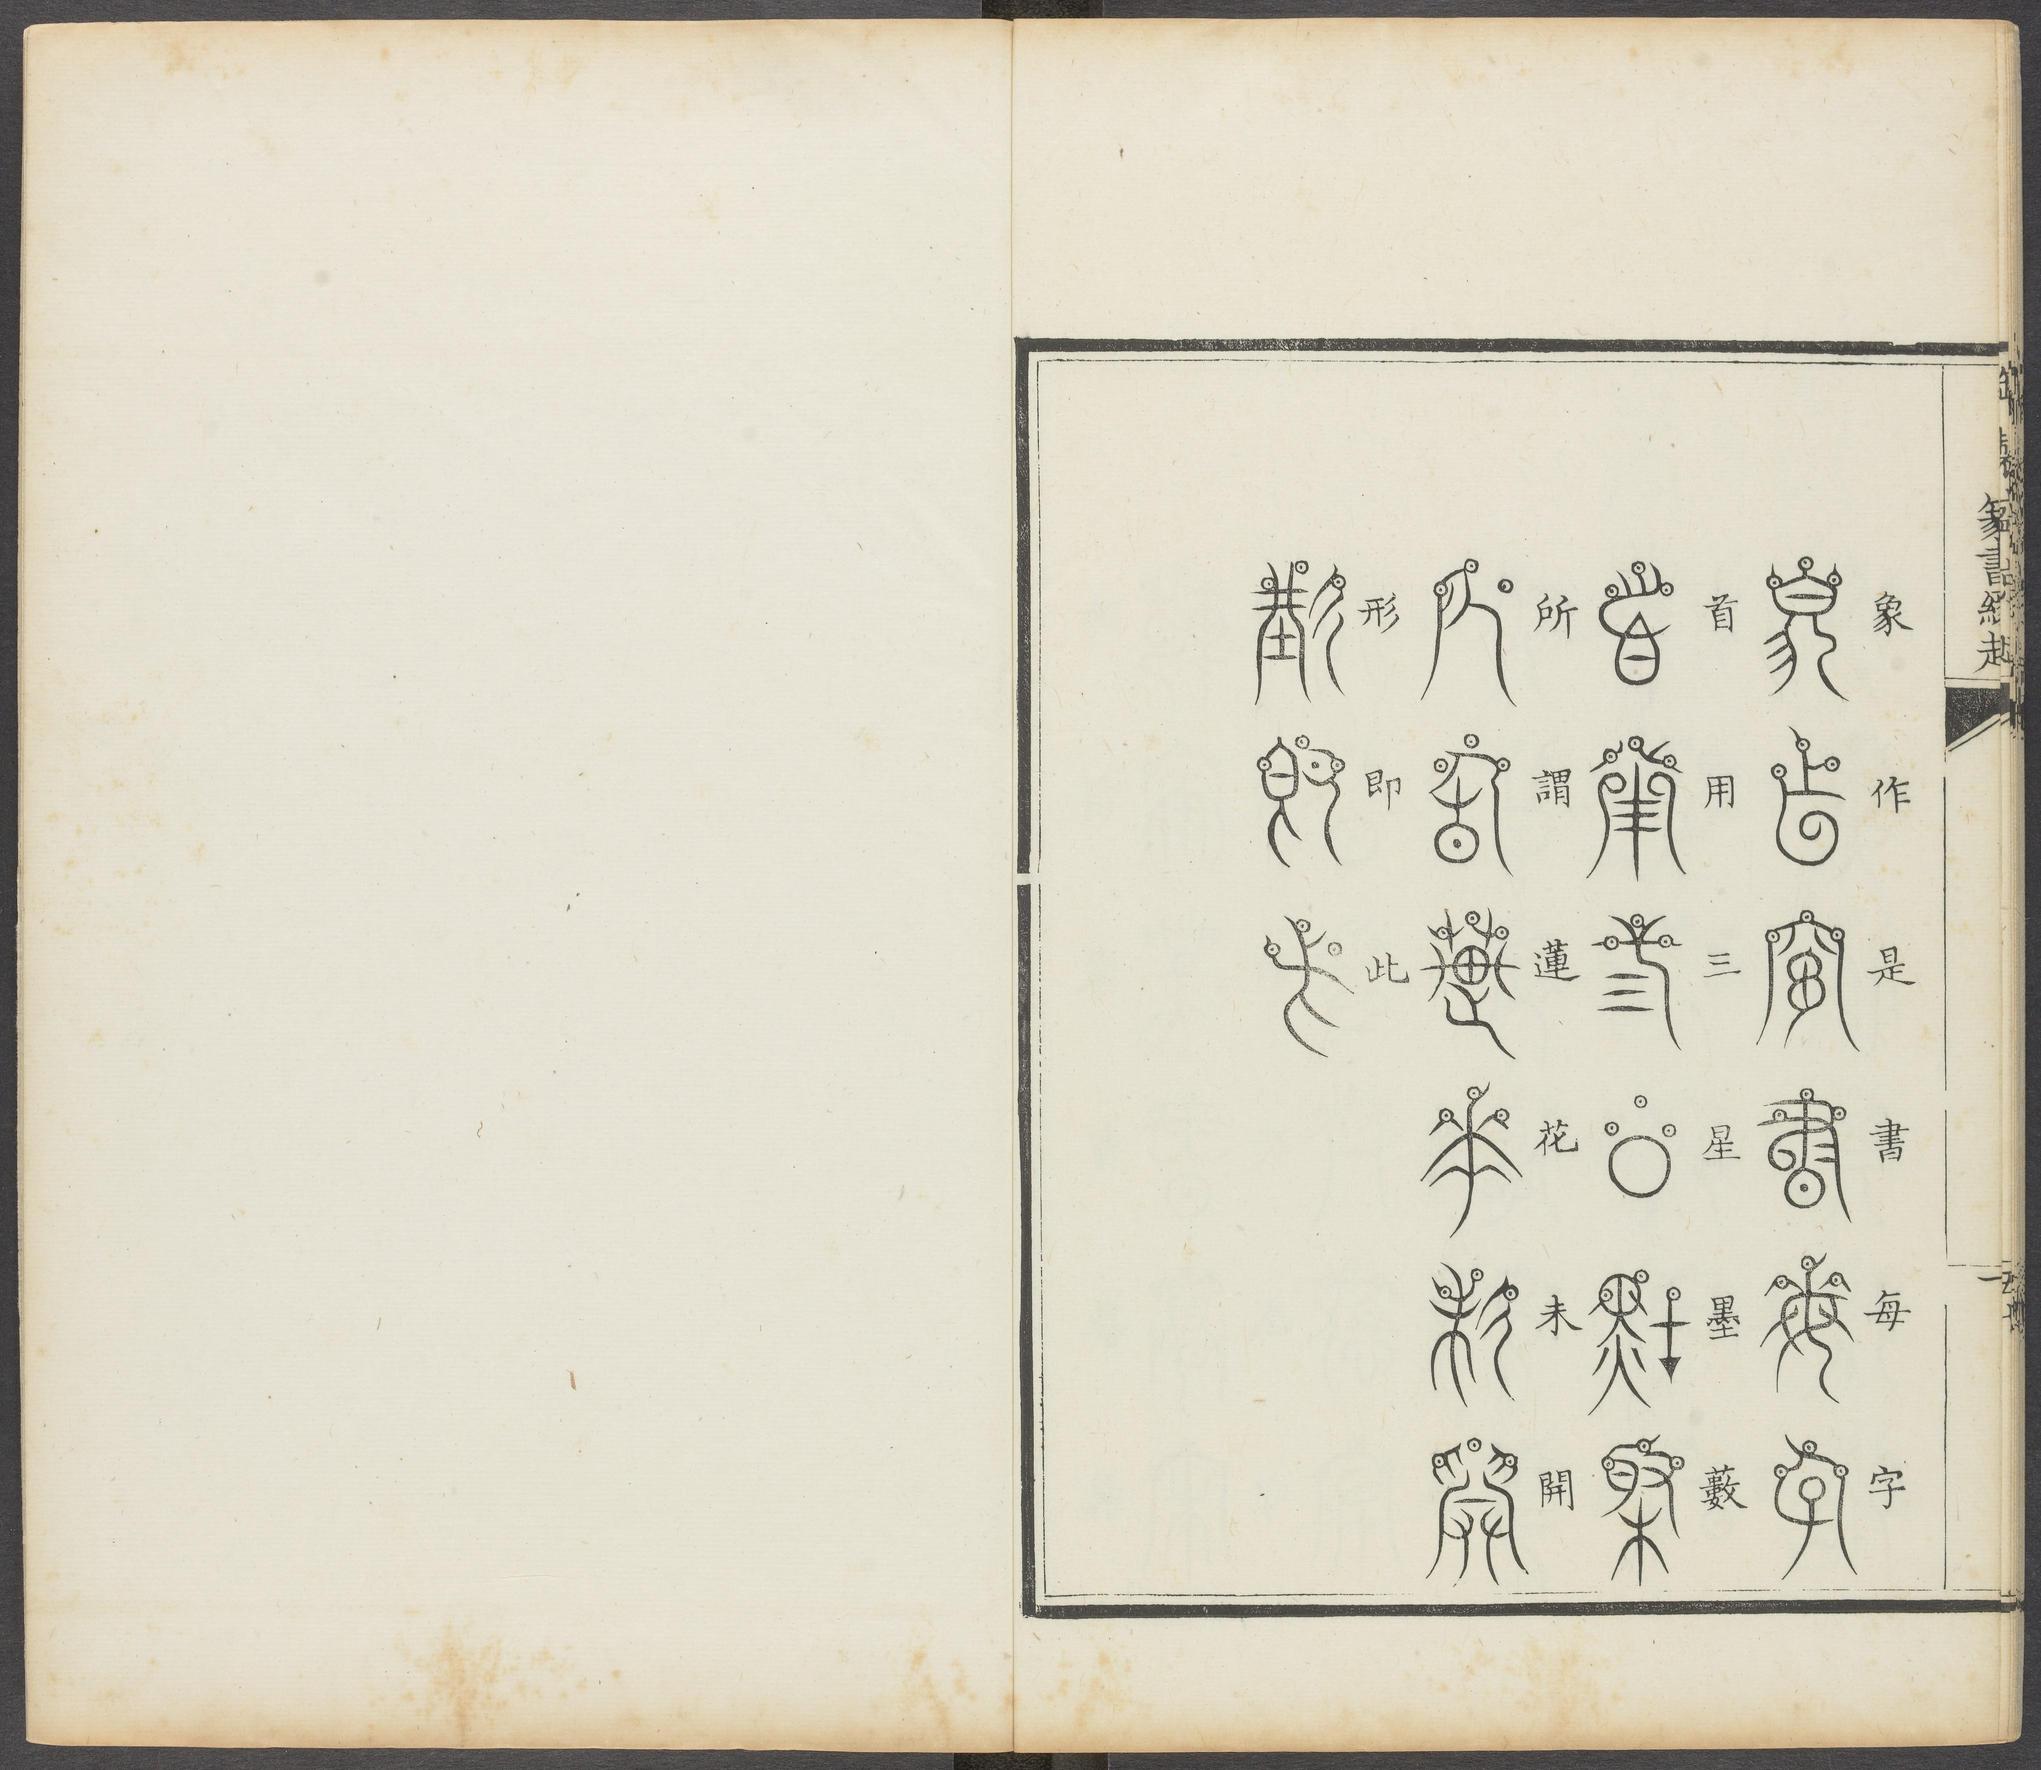 象作是書每字
首用三星墨藪
所謂蓮花未開
形即此
篆書緣起